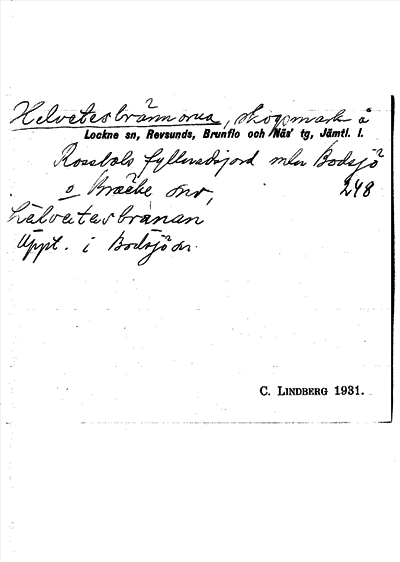 Helvetesbrännorna, skogsmark å
Lockne sn, Revsunds, Brunflo och Näs' tg, Jämtl. l.
Rossbols fyllnadsjord mln Bodsjö
o Bräcke snr, 248
hälvetesbränan
Uppt. i Bodsjö sn.
C. LINDBERG 1931.